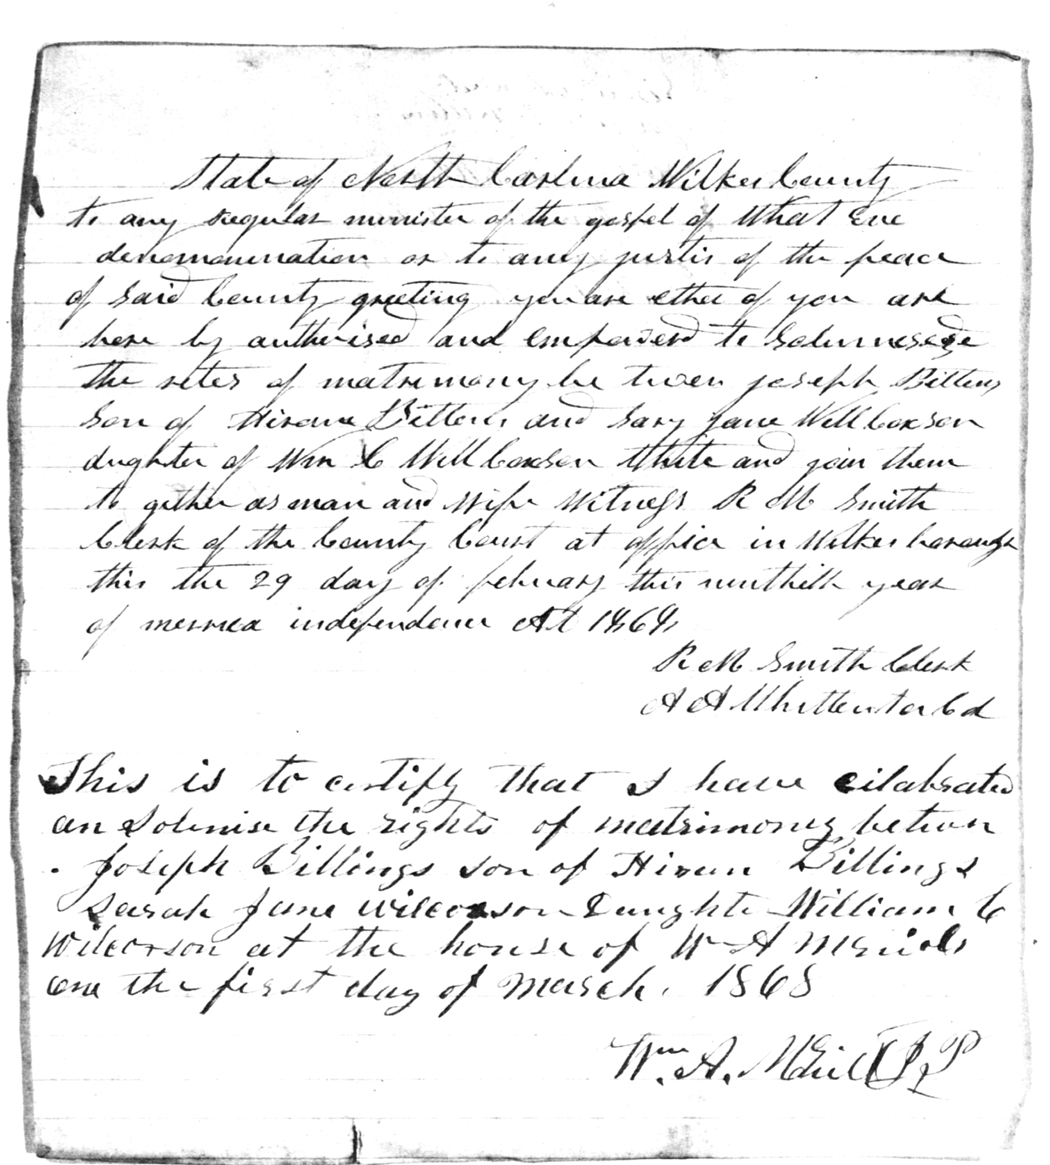 State of North Carlina Wilkes County
to any regular minister of the gospel of What Eve
denomomination or to any justis of the peace
of Said County greeting you are ether of you are
here by authorised and empowerd to
the rites of matrimony be tween joseph Billens
Son of Hiram Billens and Sary jane Willcoxson
dughter of Wm C Willcoxson White and join them
to gether as man and Wife Witness R M Smith
Clerk of the County Court at office in Wilkesborough
this the 29 day of februarry this year
of merrica independence AD 1868
R M Smith Clerk
A A Whittenton
This is to certify that I have cilabrated
an Solemise the rights of matrimony betwen
Joseph Billings son of Hiram Billings
Sarah Jane Wilcoxson Daughte William C
Wilcoxson at the house of Wm A
one the first day of March. 1868
Wm. A. McNiel JP